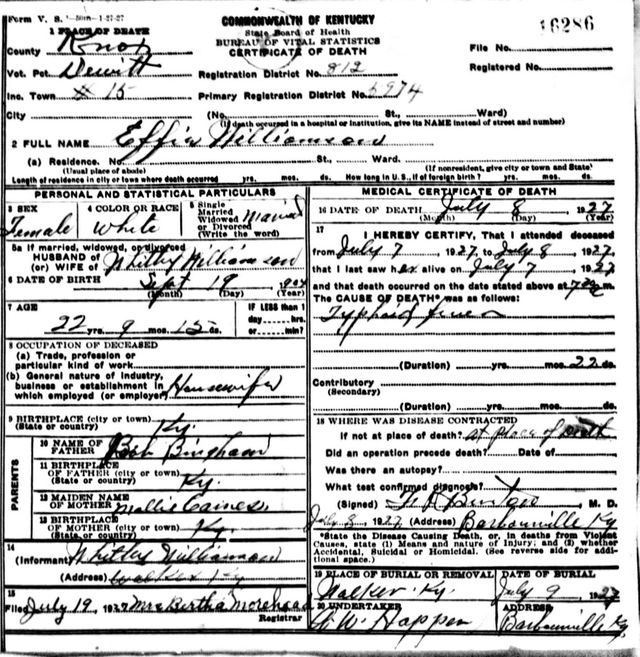 Form V. S. 1-50m-1-27-27
COMMONWEALTH OF KENTUCKY
State Board of Health
BUREAU OF VITAL STATISTICS
CERTIFICATE OF DEATH
16286
1 PLACE OF DEATH
County Knox
File No.
Vot. Pct. Dewitt
Registration District No. 812
Registered No.
Inc. Town # 15
Primary Registration District No. 6974
City (No. St., Ward)
(If death occurred in a hospital or institution, give its NAME instead of street and number)
2 FULL NAME Effie Williamson
(a) Residence. No. St., Ward.
(Usual place of abode) (If nonresident, give city or town and State)
Length of residence in city or town where death occurred yrs. mos. ds. How long in U.S., if of foreign birth? yrs. mos. ds.
PERSONAL AND STATISTICAL PARTICULARS
3 SEX Female
4 COLOR OR RACE White
5 Single Married Widowed or Divorced (Write the word) Married
5a If married, widowed, or divorced
HUSBAND of
(or) WIFE of Whitty Williamson
6 DATE OF BIRTH Sept 19 904
(Month) (Day) (Year)
7 AGE
22 yrs. 9 mos. 15 ds.
IF LESS than 1 day-----hrs. or-----min.?
8 OCCUPATION OF DECEASED
(a) Trade, profession or particular kind of work
(b) General nature of industry, business or establishment in which employed (or employer) Housewife
9 BIRTHPLACE (city or town)
(State or country) Ky.
PARENTS
10 NAME OF FATHER Bob Bingham
11 BIRTHPLACE OF FATHER (city or town)
(State or country) Ky.
12 MAIDEN NAME OF MOTHER Mollie Gaines
13 BIRTHPLACE OF MOTHER (city or town)
(State or country) Ky.
14
(Informant) Whitty Williamson
(Address) Walker Ky
15
Filed July 19 1927 Mrs Bertha Morehead
Registrar
MEDICAL CERTIFICATE OF DEATH
16 DATE OF DEATH July 8 1927
(Month) (Day) (Year)
17
I HEREBY CERTIFY, That I attended deceased
from July 7 1927 to July 8 1927,
that I last saw her alive on July 7 1927
and that death occurred on the date stated above at 7 m
The CAUSE OF DEATH* was as follows:
Typhoid fever
(Duration) yrs. mos. 22 ds.
Contributory
(Secondary)
(Duration) yrs. mos. ds.
18 WHERE WAS DISEASE CONTRACTED
If not at place of death? at place of death
Did an operation precede death? Date of
Was there an autopsy?
What test confirmed diagnosis?
(Signed) Burton, M. D.
July 8 1927 (Address) Barbourville Ky.
*State the Disease Causing Death, or, in deaths from Violent Causes, state (1) Means and nature of Injury; and (2) whether Accidental, Suicidal or Homicidal. (See reverse side for additional space.)
19 PLACE OF BURIAL OR REMOVAL
Walker Ky.
DATE OF BURIAL
July 9 1927
20 UNDERTAKER
W. Hopper
ADDRESS
Barbourville Ky.